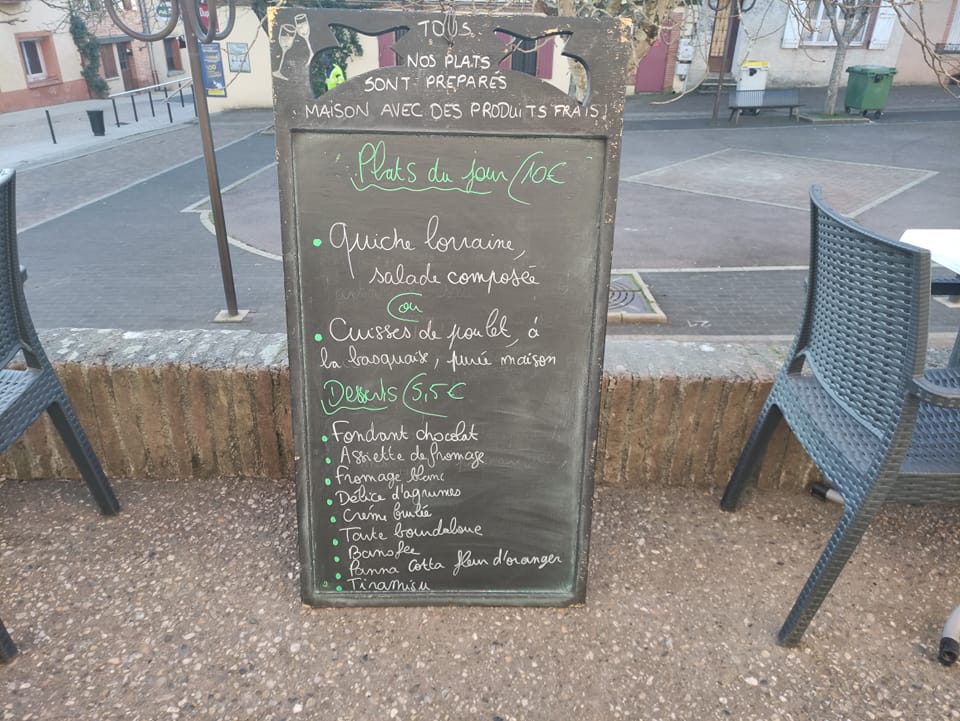 TOUS
NOS PLATS
SONT PREPARÉS
MAISON AVEC DES PRODUITS FRAIS!
Plats du jour (10€
• Quiche lorraine,
salade composée
ou
• Cuisses de poulet, à
la basquaise, purée maison
Desserts (5,5€
• Fondant chocolat
• Assiette de fromage
• Fromage blanc
• Délice d'agrumes
• Crème brulée
• Tarte bourdaloue
• Banofee
• Panna Cotta fleur d'oranger
• Tiramisu